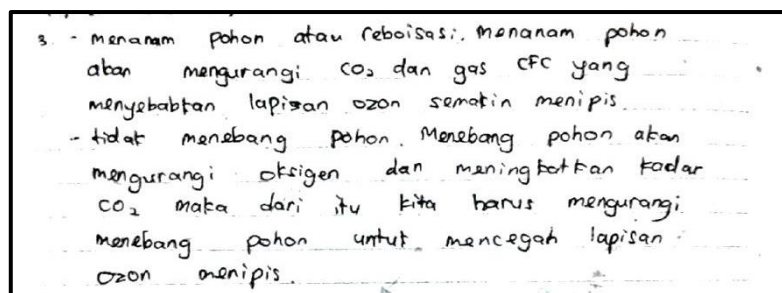 3. - Menanam pohon atau reboisasi. Menanam pohon
akan mengurangi CO₂ dan gas CFC yang
menyebabkan lapisan ozon semakin menipis
- tidak menebang pohon. Menebang pohon akan
mengurangi oksigen dan meningkatkan kadar
CO₂ maka dari itu kita harus mengurangi
menebang pohon untuk mencegah lapisan
ozon menipis.